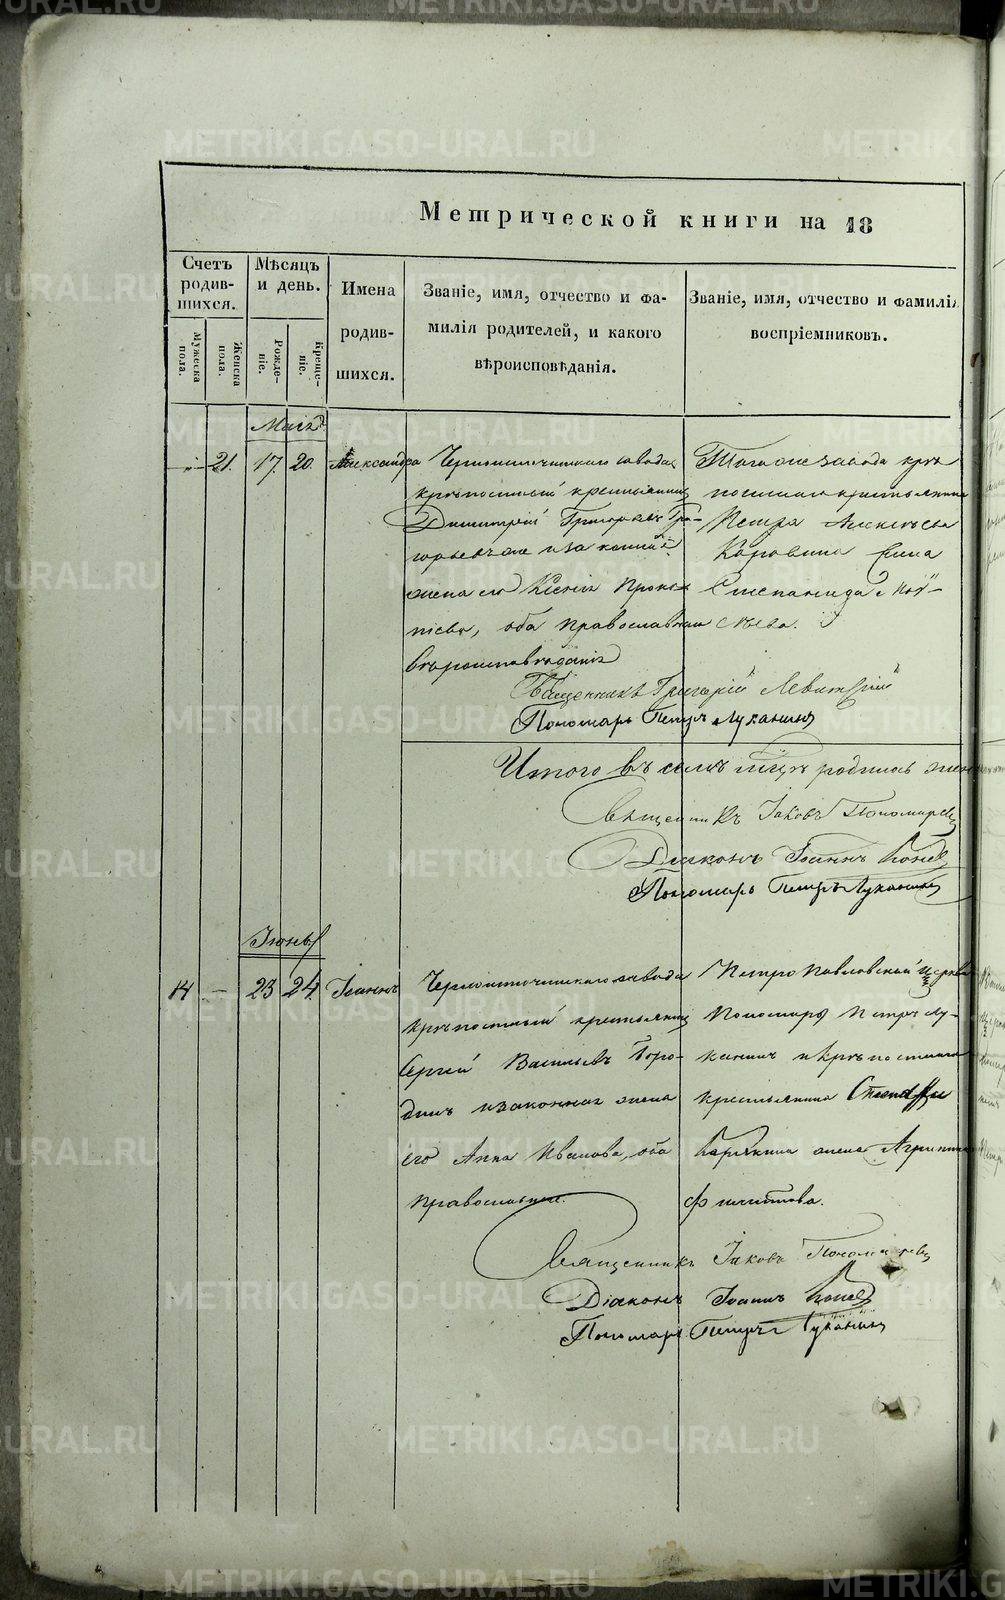 METRIKI.GASO-URAL.RU
Метрической книги на 18
Счетъ родив-шихся.
Мужеска пола.
Женска пола.
Мѣсяцъ и день.
Рожде-ніе.
Креще-ніе.
Имена родив-шихся.
Званіе, имя, отчество и фа-
милія родителей, и какого
вѣроисповѣданія.
Званіе, имя, отчество и фамилія
воспріемниковъ.
Маія
21. 17. 20. Александра
Черноисточинскаго завода
крѣпостный крестьянинъ
Димитрій Григорьевъ
жена его Ксенія Проко-
піева, оба православнаго
вѣроисповѣданія
Тогоже завода крѣ-
постнаго крестьянина
Петра Алексѣева
Коровина
Степанида
Священникъ Григорій Левитскій
Пономарь Петръ Луканинъ
Итого въ семъ мѣсяцѣ родилось
Священникъ Іаковъ Пономаревъ
Діаконъ Іоаннъ Коневъ
Пономарь Петръ Луканинъ
Іюнь
14 — 23 24. Іоаннъ
Черноисточинскаго завода
крѣпостный крестьянинъ
Сергій Васильевъ Горо-
динъ и законная жена
его Анна Иванова, оба
православные.
Петро Павловской церкви
Пономарь Петръ Лу-
канинъ и крѣпостнаго
крестьянина
Карякина жена Агрипина
Филитова.
Священникъ Іаковъ Пономаревъ
Діаконъ Іоаннъ Коневъ
Пономарь Петръ Луканинъ